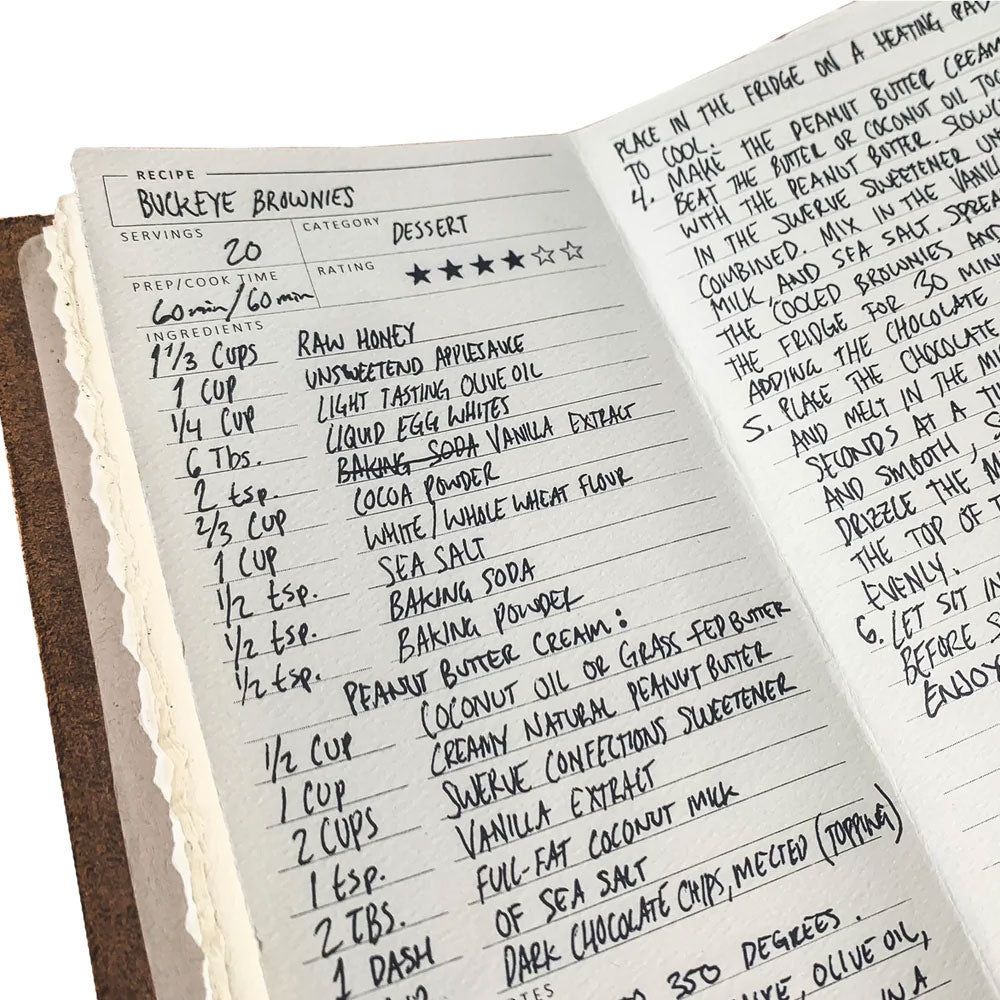 RECIPE
BUCKEYE BROWNIES
SERVINGS 20 CATEGORY DESSERT
PREP/COOK TIME 60 min/60 min RATING ★★★★☆☆
INGREDIENTS
1 1/3 CUPS RAW HONEY
1 CUP UNSWEETEND APPLESAUCE
1/4 CUP LIGHT TASTING OLIVE OIL
6 Tbs. LIQUID EGG WHITES
2 tsp. BAKING SODA VANILLA EXTRACT
2/3 CUP COCOA POWDER
1 CUP WHITE/WHOLE WHEAT FLOUR
1/2 tsp. SEA SALT
1/2 tsp. BAKING SODA
1/2 tsp. BAKING POWDER
PEANUT BUTTER CREAM:
1/2 CUP COCONUT OIL OR GRASS-FED BUTTER
1 CUP CREAMY NATURAL PEANUT BUTTER
2 CUPS SWERVE CONFECTIONS SWEETENER
1 tsp. VANILLA EXTRACT
2 TBS. FULL-FAT COCONUT MILK
1 DASH OF SEA SALT
DARK CHOCOLATE CHIPS, MELTED (TOPPING)
350 DEGREES.
OLIVE OIL,
IN A
PLACE IN THE FRIDGE ON A HEATING PAD
TO COOL.
4. MAKE THE PEANUT BUTTER CREAM
BEAT THE BUTTER OR COCONUT OIL
WITH THE PEANUT BUTTER.
IN THE SWERVE SWEETENER
COMBINED. MIX IN THE VANILLA
MILK, AND SEA SALT.
THE COOLED BROWNIES AND
THE FRIDGE FOR 30
ADDING THE CHOCOLATE
5. PLACE THE CHOCOLATE
AND MELT IN THE
SECONDS AT A
AND SMOOTH,
DRIZZLE THE
THE TOP OF
EVENLY.
6. LET SIT IN
BEFORE
ENJOY